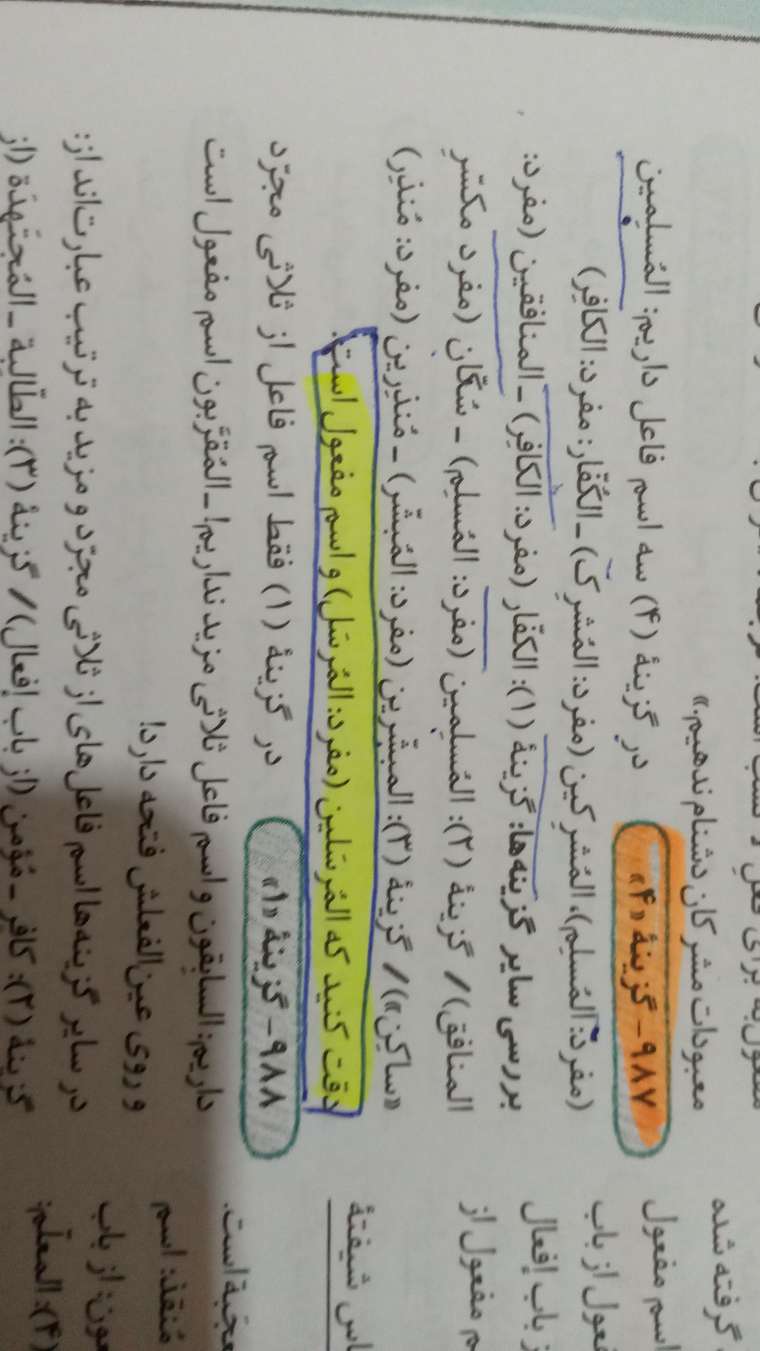 معبودات مشرکان دشنام ندهیم.»
۹۸۷- گزینهٔ «۴» در گزینهٔ (۴) سه اسم فاعل داریم: المُسلِمین
(مفرد: المُسلِم)، المُشرِکین (مفرد: المُشرِک) ـ الکُفّار: مفرد: الکافِر)
بررسی سایر گزینه‌ها: گزینهٔ (۱): الکفّار (مفرد: الکافِر) ـ المنافقین (مفرد:
المنافق) / گزینهٔ (۲): المُسلِمین (مفرد: المُسلِم) ـ سُکّان (مفرد مکسّرِ
«ساکِن») / گزینهٔ (۳): المبشّرین (مفرد: المُبشّر) ـ مُنذِرین (مفرد: مُنذِر)
دقت کنید که المُرسَلین (مفرد: المُرسَل) و اسم مفعول است.
۹۸۸- گزینهٔ «۱» در گزینهٔ (۱) فقط اسم فاعل از ثلاثی مجرّد
داریم: السابِقون و اسم فاعل ثلاثی مزید نداریم! ـ المُقرَّبون اسم مفعول است
و روی عین‌الفعلش فتحه دارد!
در سایر گزینه‌ها اسم فاعل‌های از ثلاثی مجرّد و مزید به ترتیب عبارت‌اند از:
گزینهٔ (۲): کافِر ـ مُؤمن (از باب إفعال) / گزینهٔ (۳): الطّالِبة ـ المُجتَهِدَة (از
گرفته شده
اسم مفعول
عول از باب
ز باب إفعال
م مفعول از
اس شیفتهٔ
عجَبة است.
مُنقذ: اسم
مون: از باب
(۴): المعلّم: